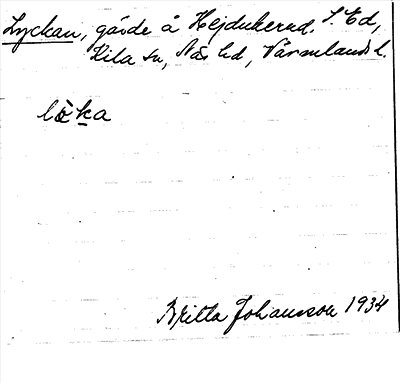 Lyckan, gärde å Hejdukerud, S. Ed,
Kila sn, Näs hd, Värmlands l.
löka
Britta Johansson 1934